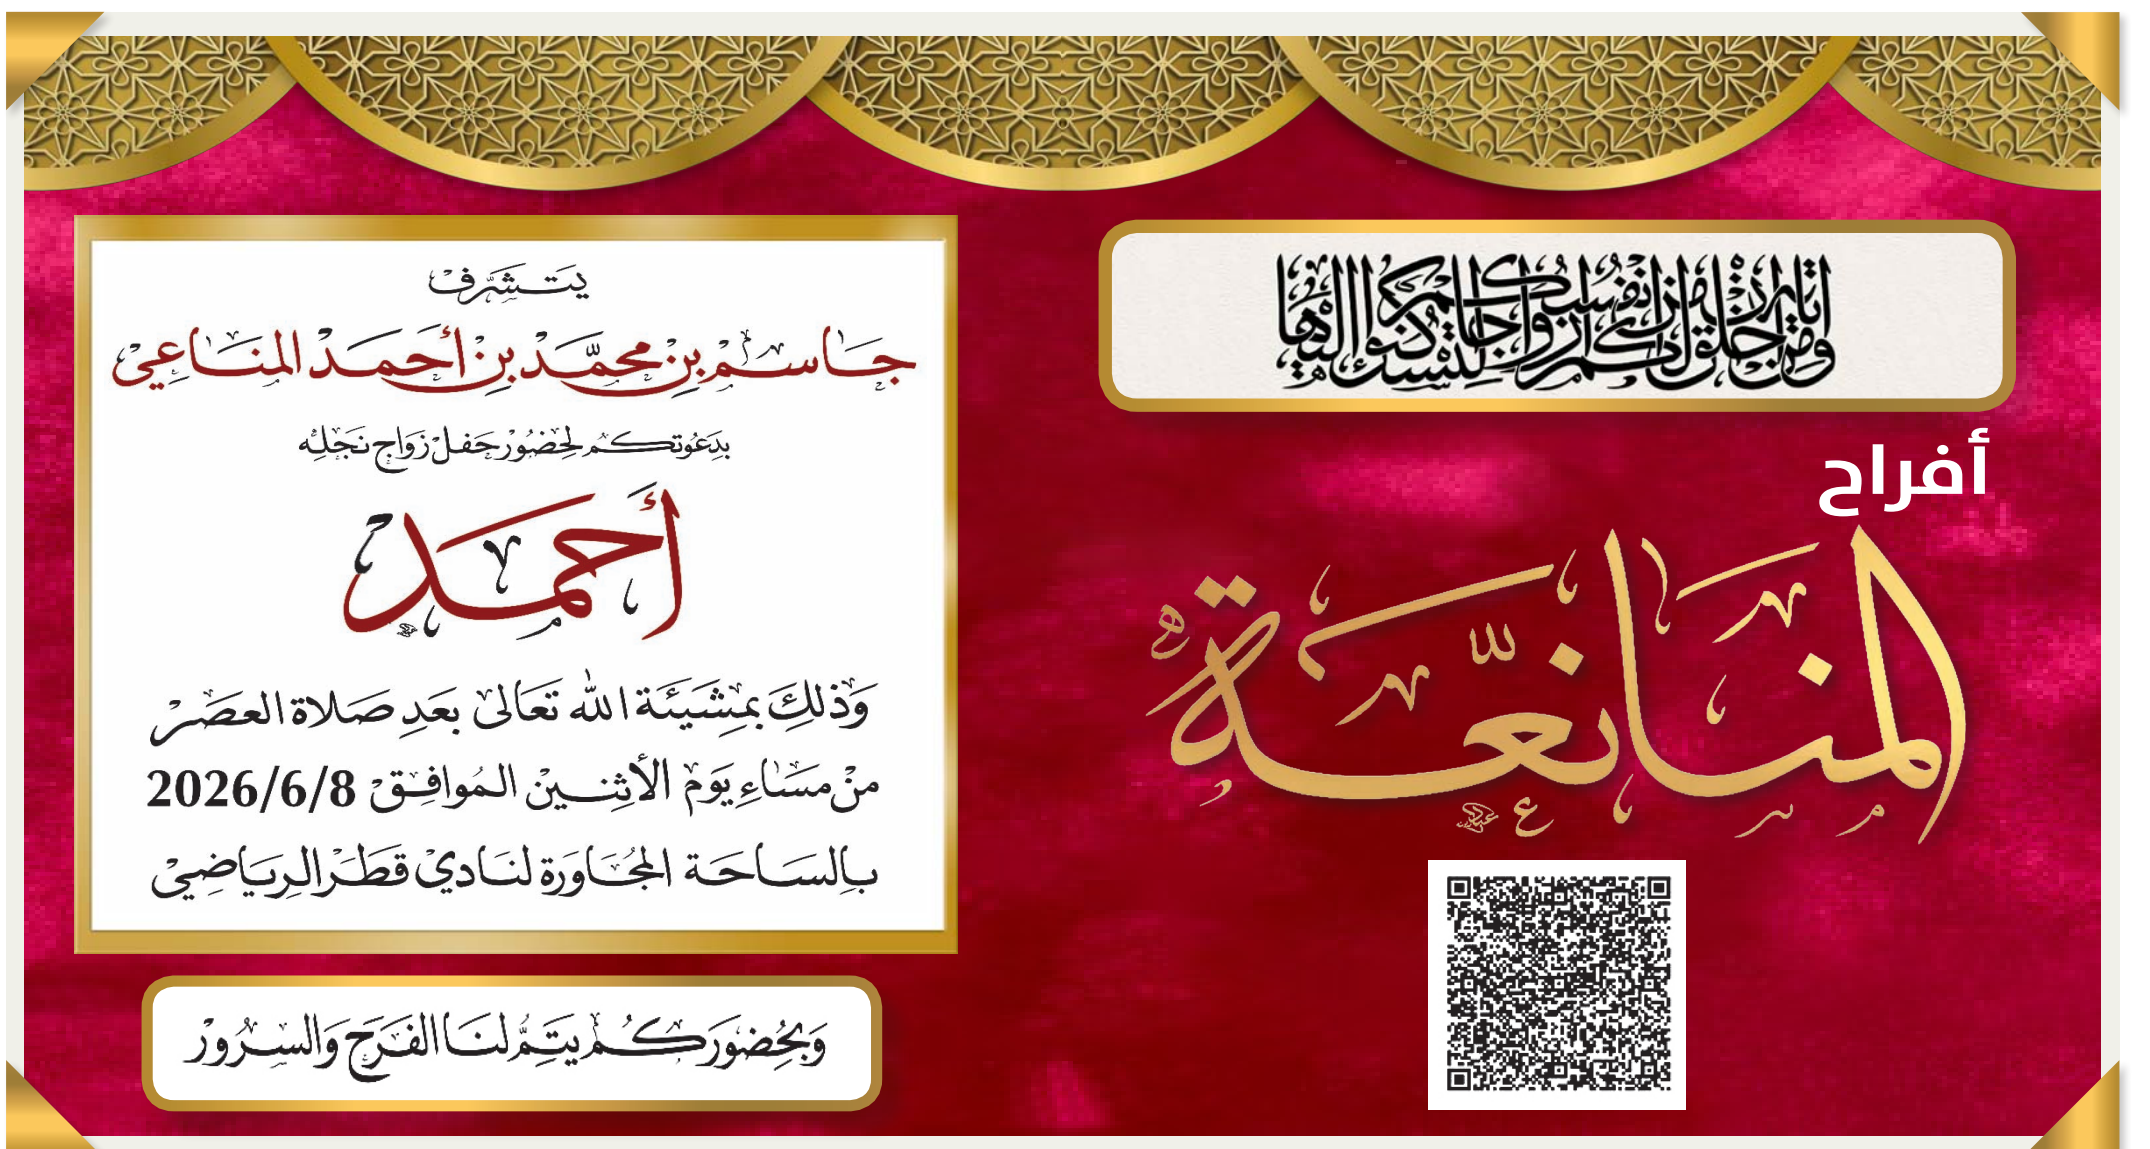 ومن آياته أن خلق لكم من أنفسكم أزواجا لتسكنوا إليها
أفراح
المنانعة
يتشرف
جاسم بن محمد بن أحمد المناعي
بدعوتكم لحضور حفل زواج نجله
أحمد
وذلك بمشيئة الله تعالى بعد صلاة العصر
من مساء يوم الأثنين الموافق 2026/6/8
بالساحة المجاورة لنادي قطر الرياضي
وبحضوركم يتم لنا الفرح والسرور